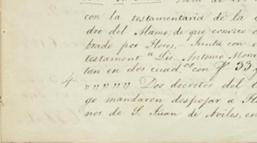 con la testamentaria de la
dro del Alamo, de que conoce
brado por Flores. Junta con e
testament.ª Lic. Antonio Mon
tan en dos cuad.os con fs 33
4. " " " " " Dos decretos del
go mandaron despojar a
nos de S. Juan de Aviles, en